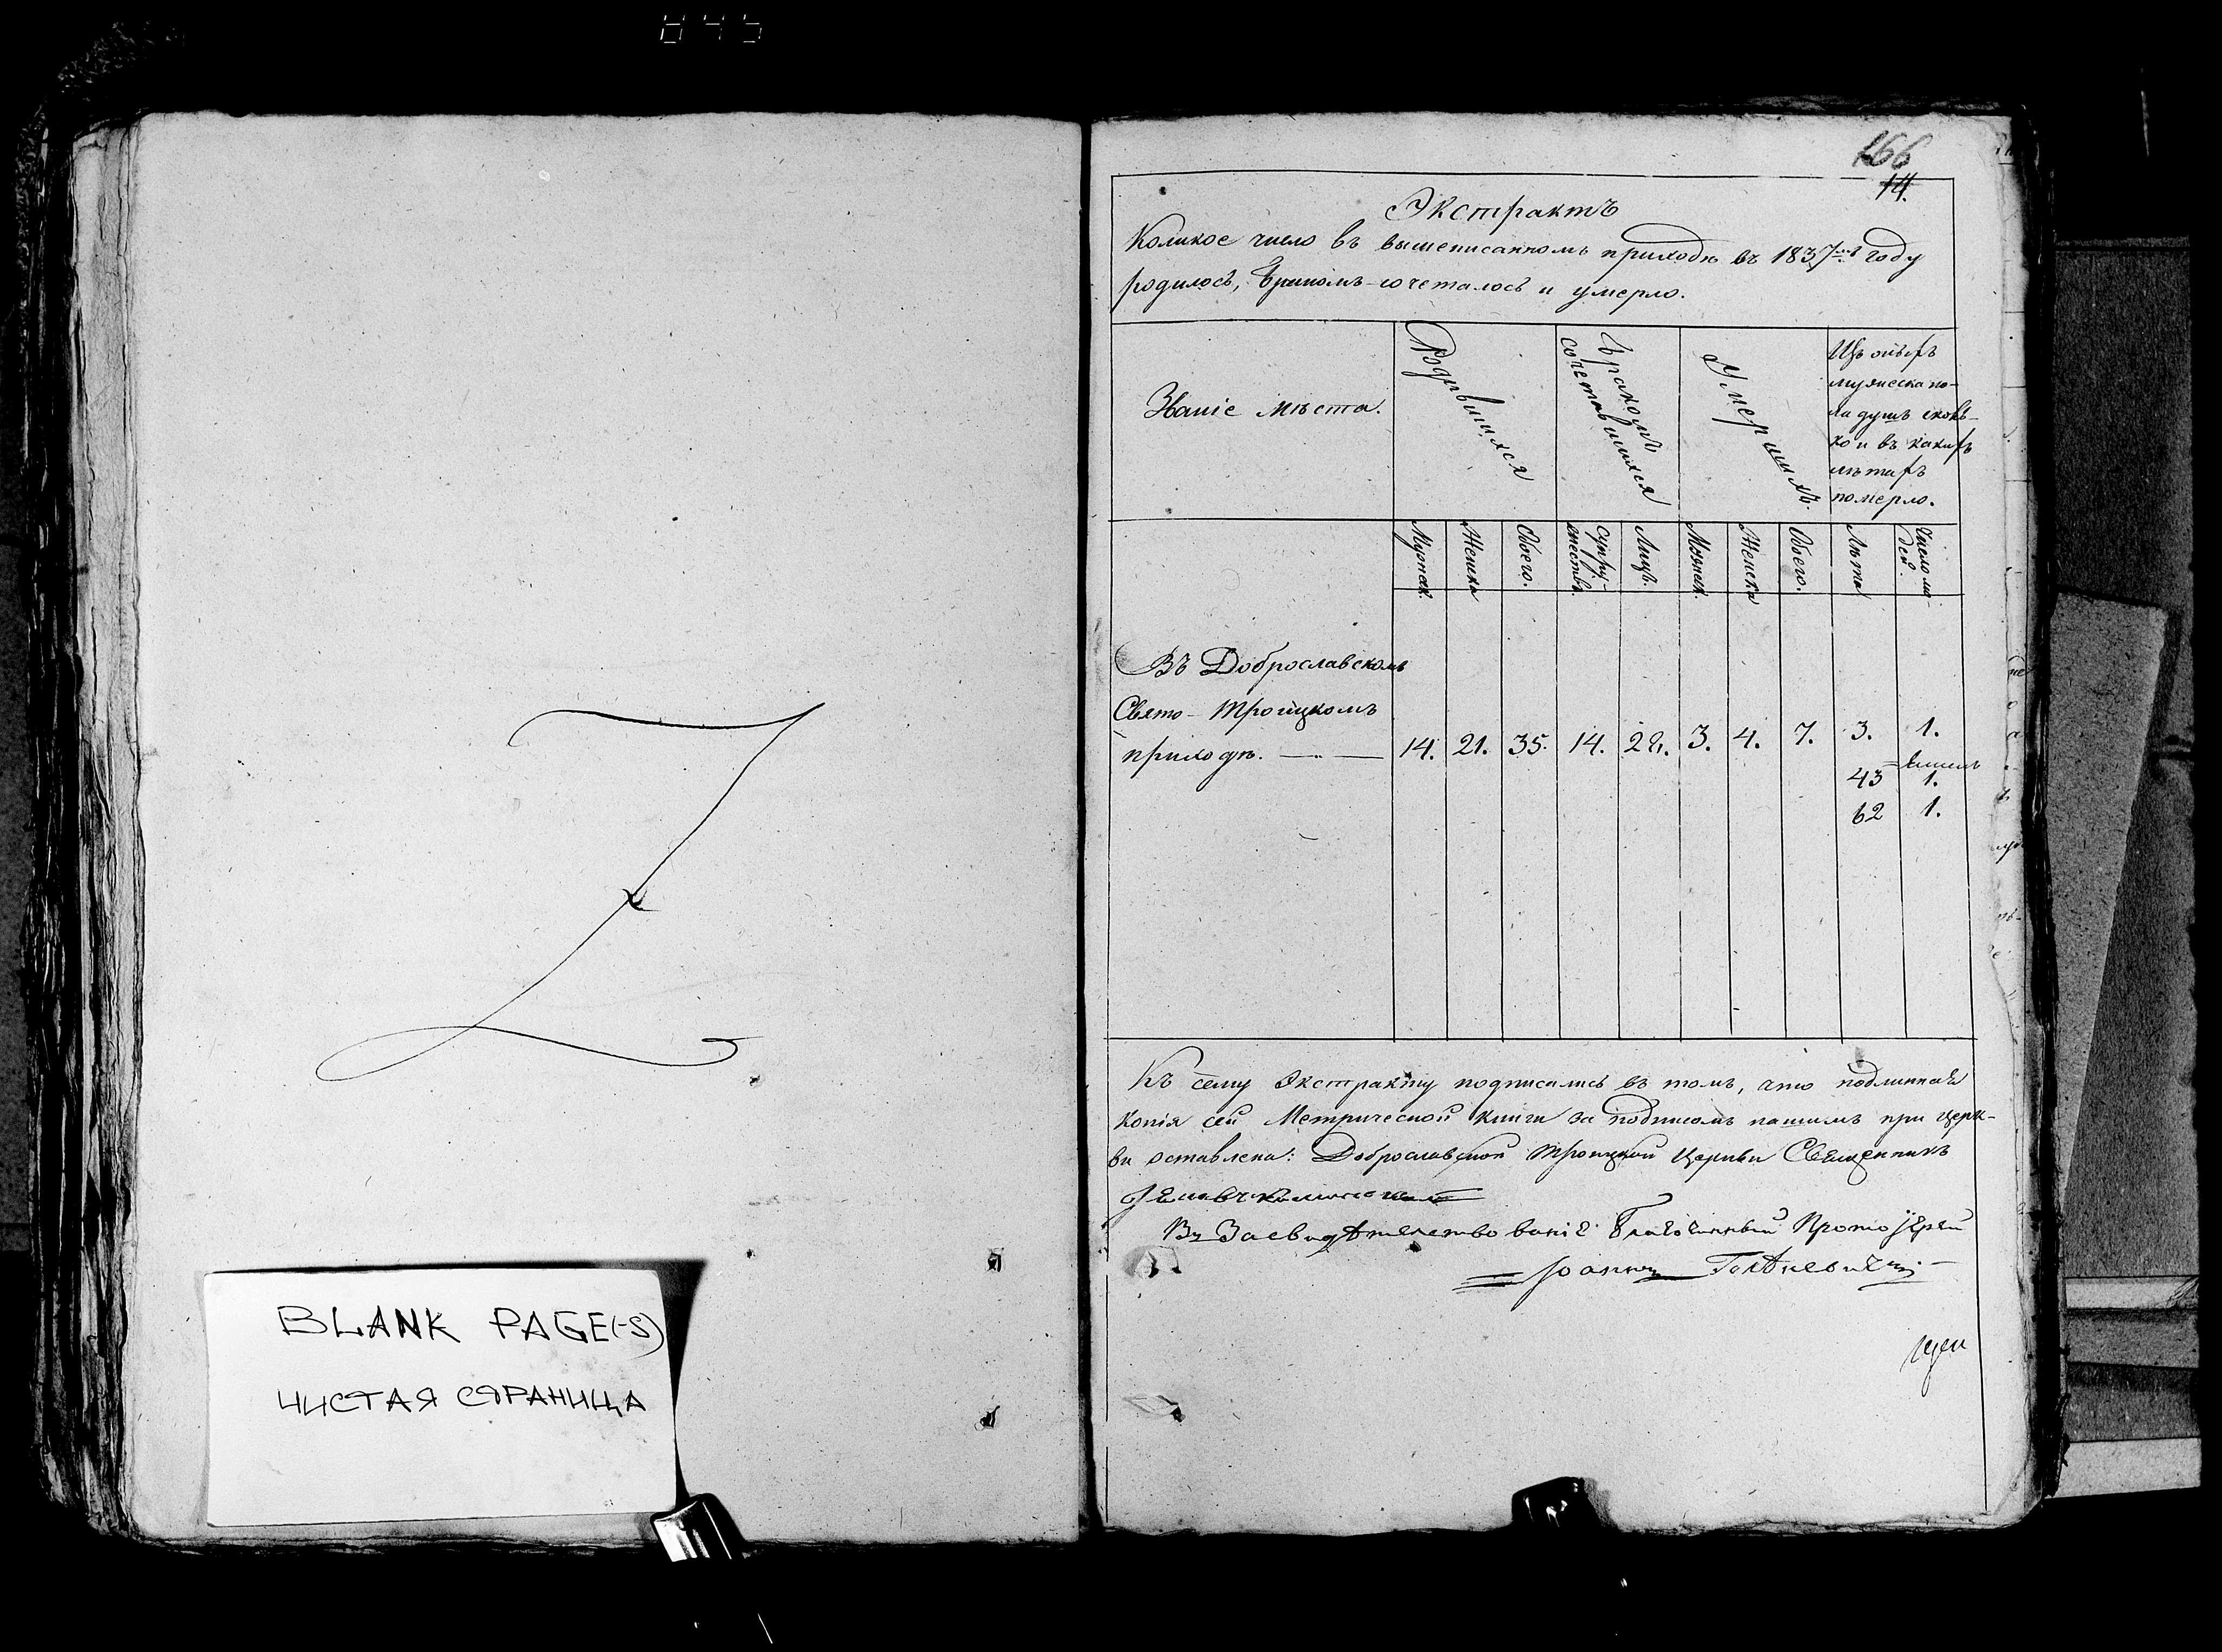 845
BLANK PAGE(-S)
ЧИСТАЯ СТРАНИЦА
166
14.
Экстрактъ
Коликое число въ вышеписанномъ приходѣ въ 1837мъ году
родилось, бракомъ сочеталось и умерло.
Званіе мѣста.
Родившихся
Бракомъ
сочетавшихся
Умершихъ
Изъ оныхъ
мужеска по-
ла душъ сколь-
ко и въ какихъ
лѣтахъ
померло.
Мужеск.
Женска
Обоего.
Супру-
жествъ
Лицъ.
Мужеск.
Женска
Обоего.
Лѣта
Число лю-
дей.
Въ Доброславскомъ
Свято-Троицкомъ
приходѣ. 14. 21. 35. 14. 28. 3. 4. 7. 3. 1.
43 1.
62 1.
Къ сему Экстракту подписались въ томъ, что подлинная
копія сей Метрической книги за подписомъ нашимъ при церк-
ви оставлена: Доброславской Троицкой Церкви Священникъ
Въ Засвидѣтелствованіе Благочинный Протоіерей
Іоаннъ